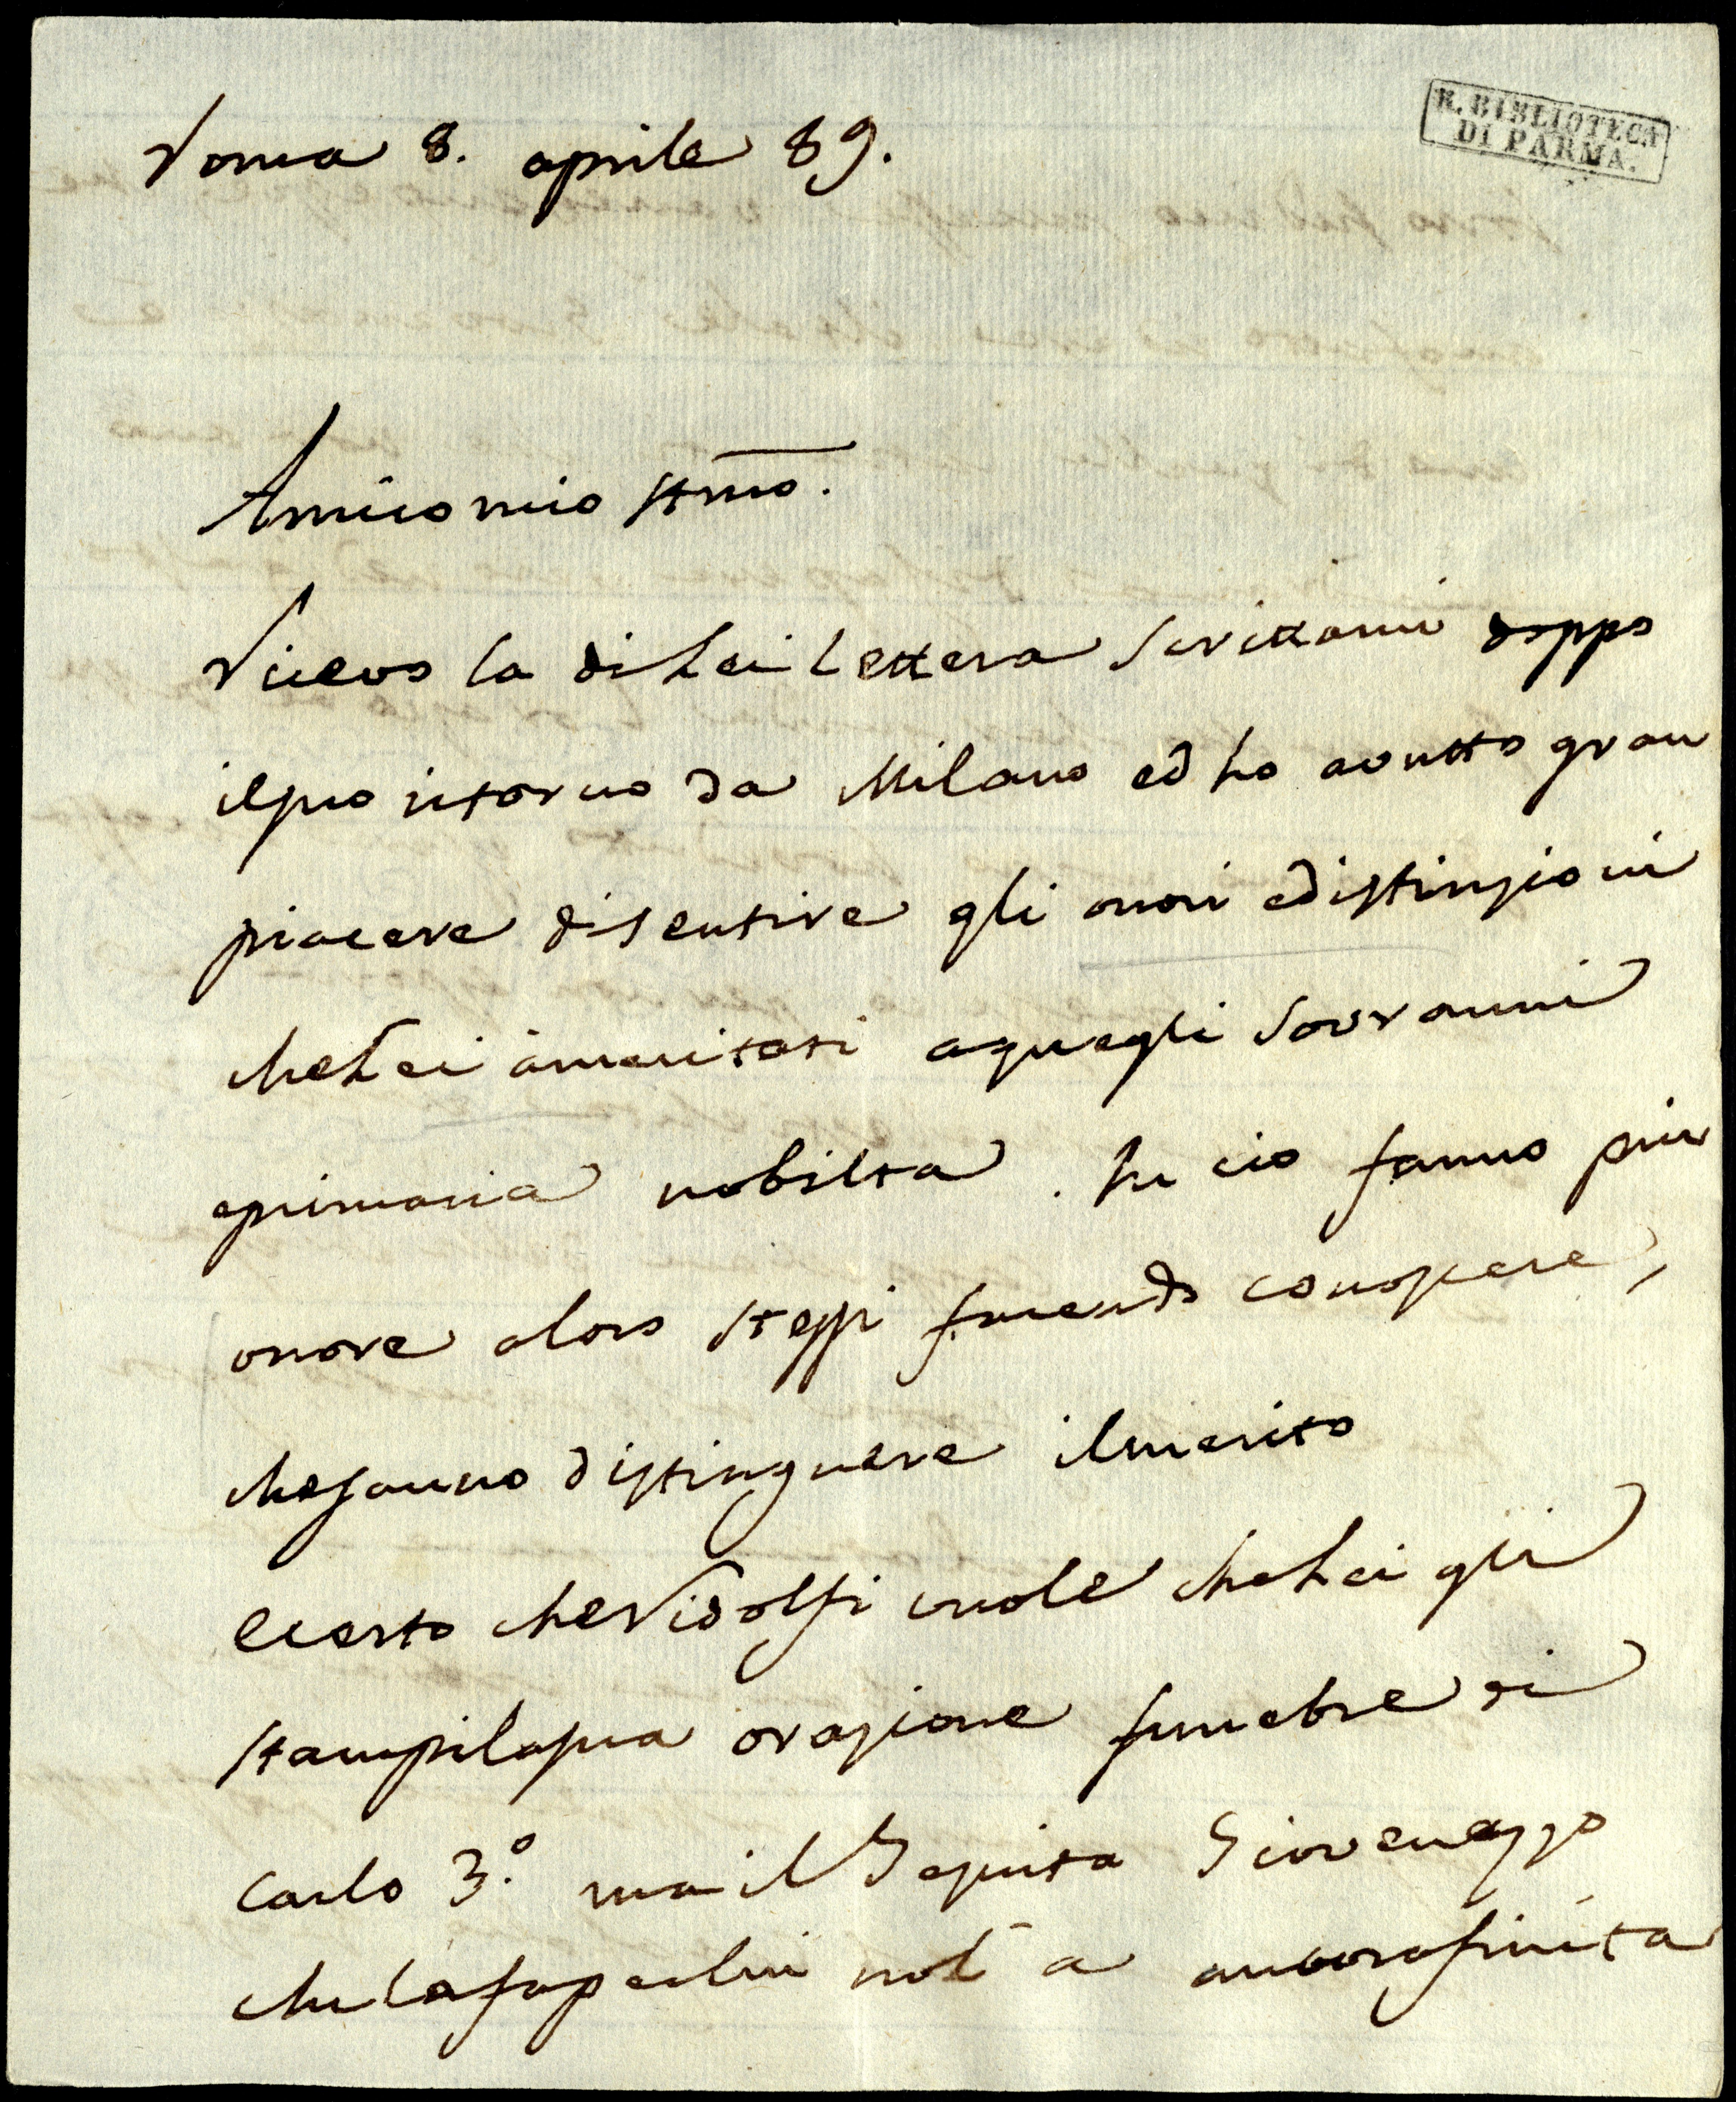 R. BIBLIOTECA
DI PARMA.
Roma 8. aprile 89.
Amico mio stmo.
Ricevo la di Lei lettera scrittami doppo
il suo ritorno da Milano ed ho avutto gran
piacere di sentire gli onori e distinzioni
che Lei à meritati a quegli Sovranni
e primaria nobilta. In cio fanno piu
onore a loro stessi facendo conoscere,
che sanno distinguere il merito
e certo che Ridolfi vuole che Lei gli
stampi la sua orazione funebre di
Carlo 3.º ma il Gesuita Giovenazzo
che la fa per lui nol à ancora finita